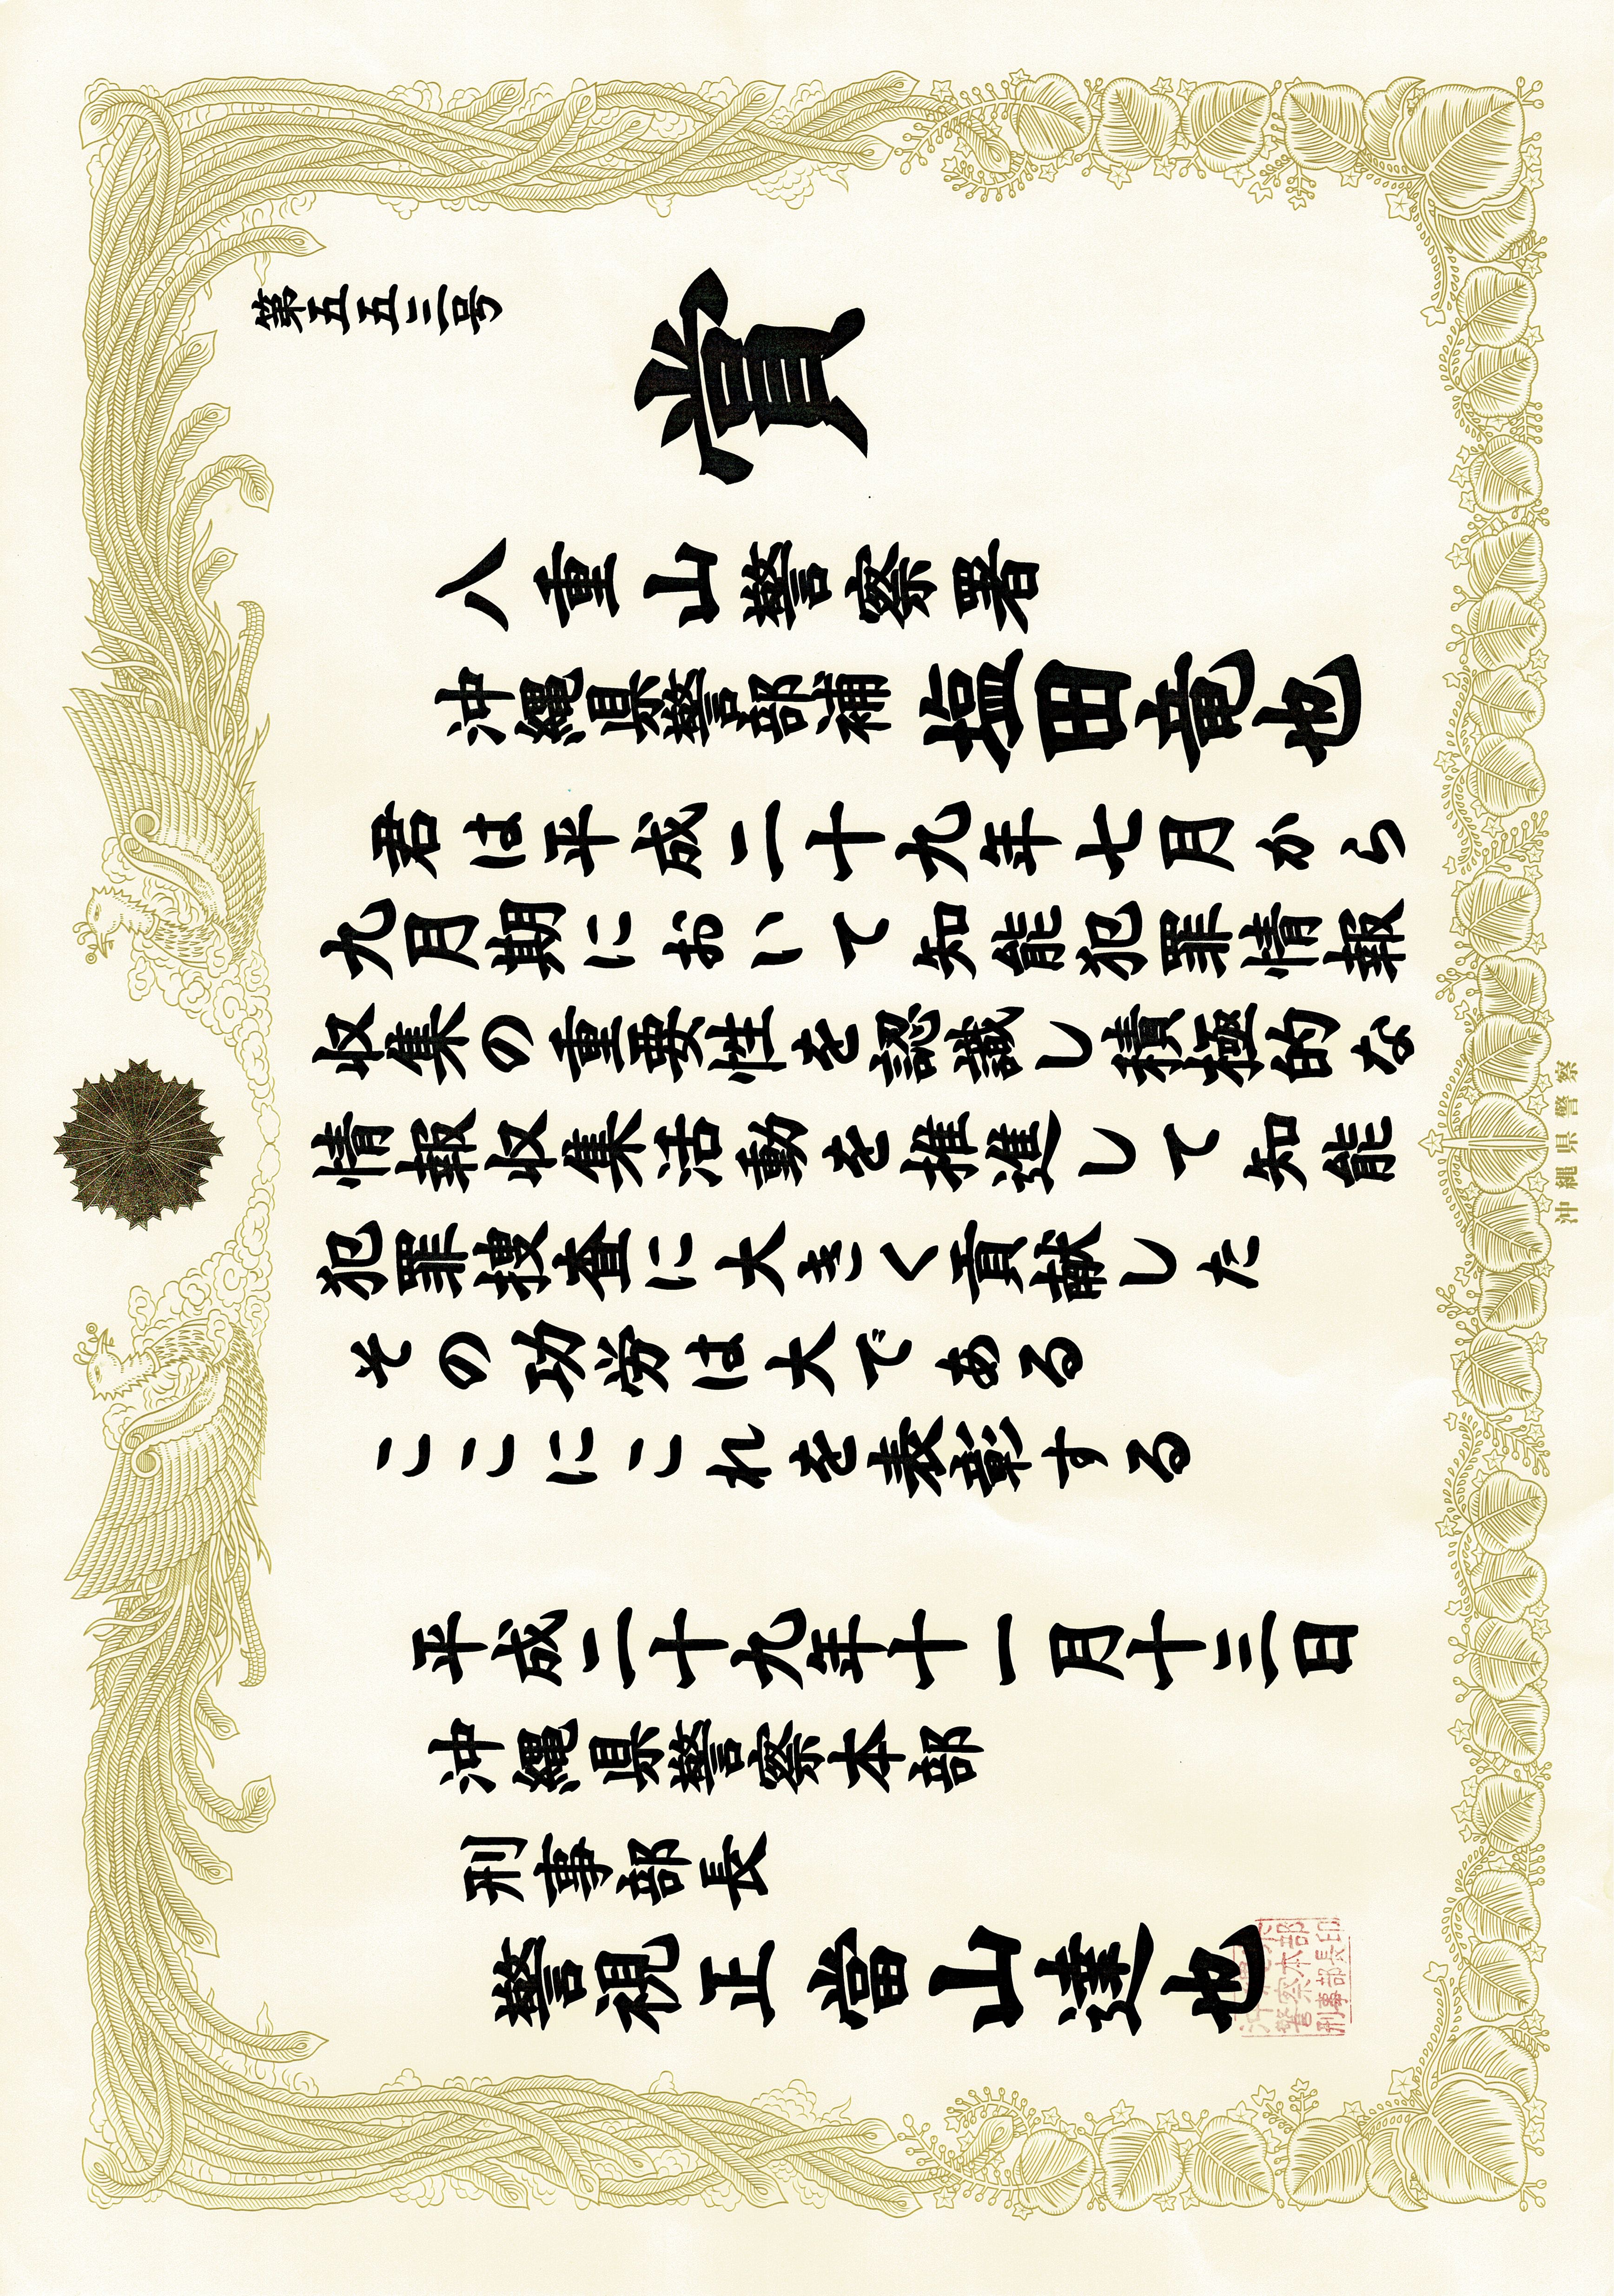 第五五三号
賞
八重山警察署
沖縄県警部補 塩田竜也
君は平成二十九年七月から
九月期において知能犯罪情報
収集の重要性を認識し積極的な
情報収集活動を推進して知能
犯罪捜査に大きく貢献した
その功労は大である
ここにこれを表彰する
平成二十九年十一月十三日
沖縄県警察本部
刑事部長
警視正 當山達也
警察本部
刑事部長印
沖縄県警察